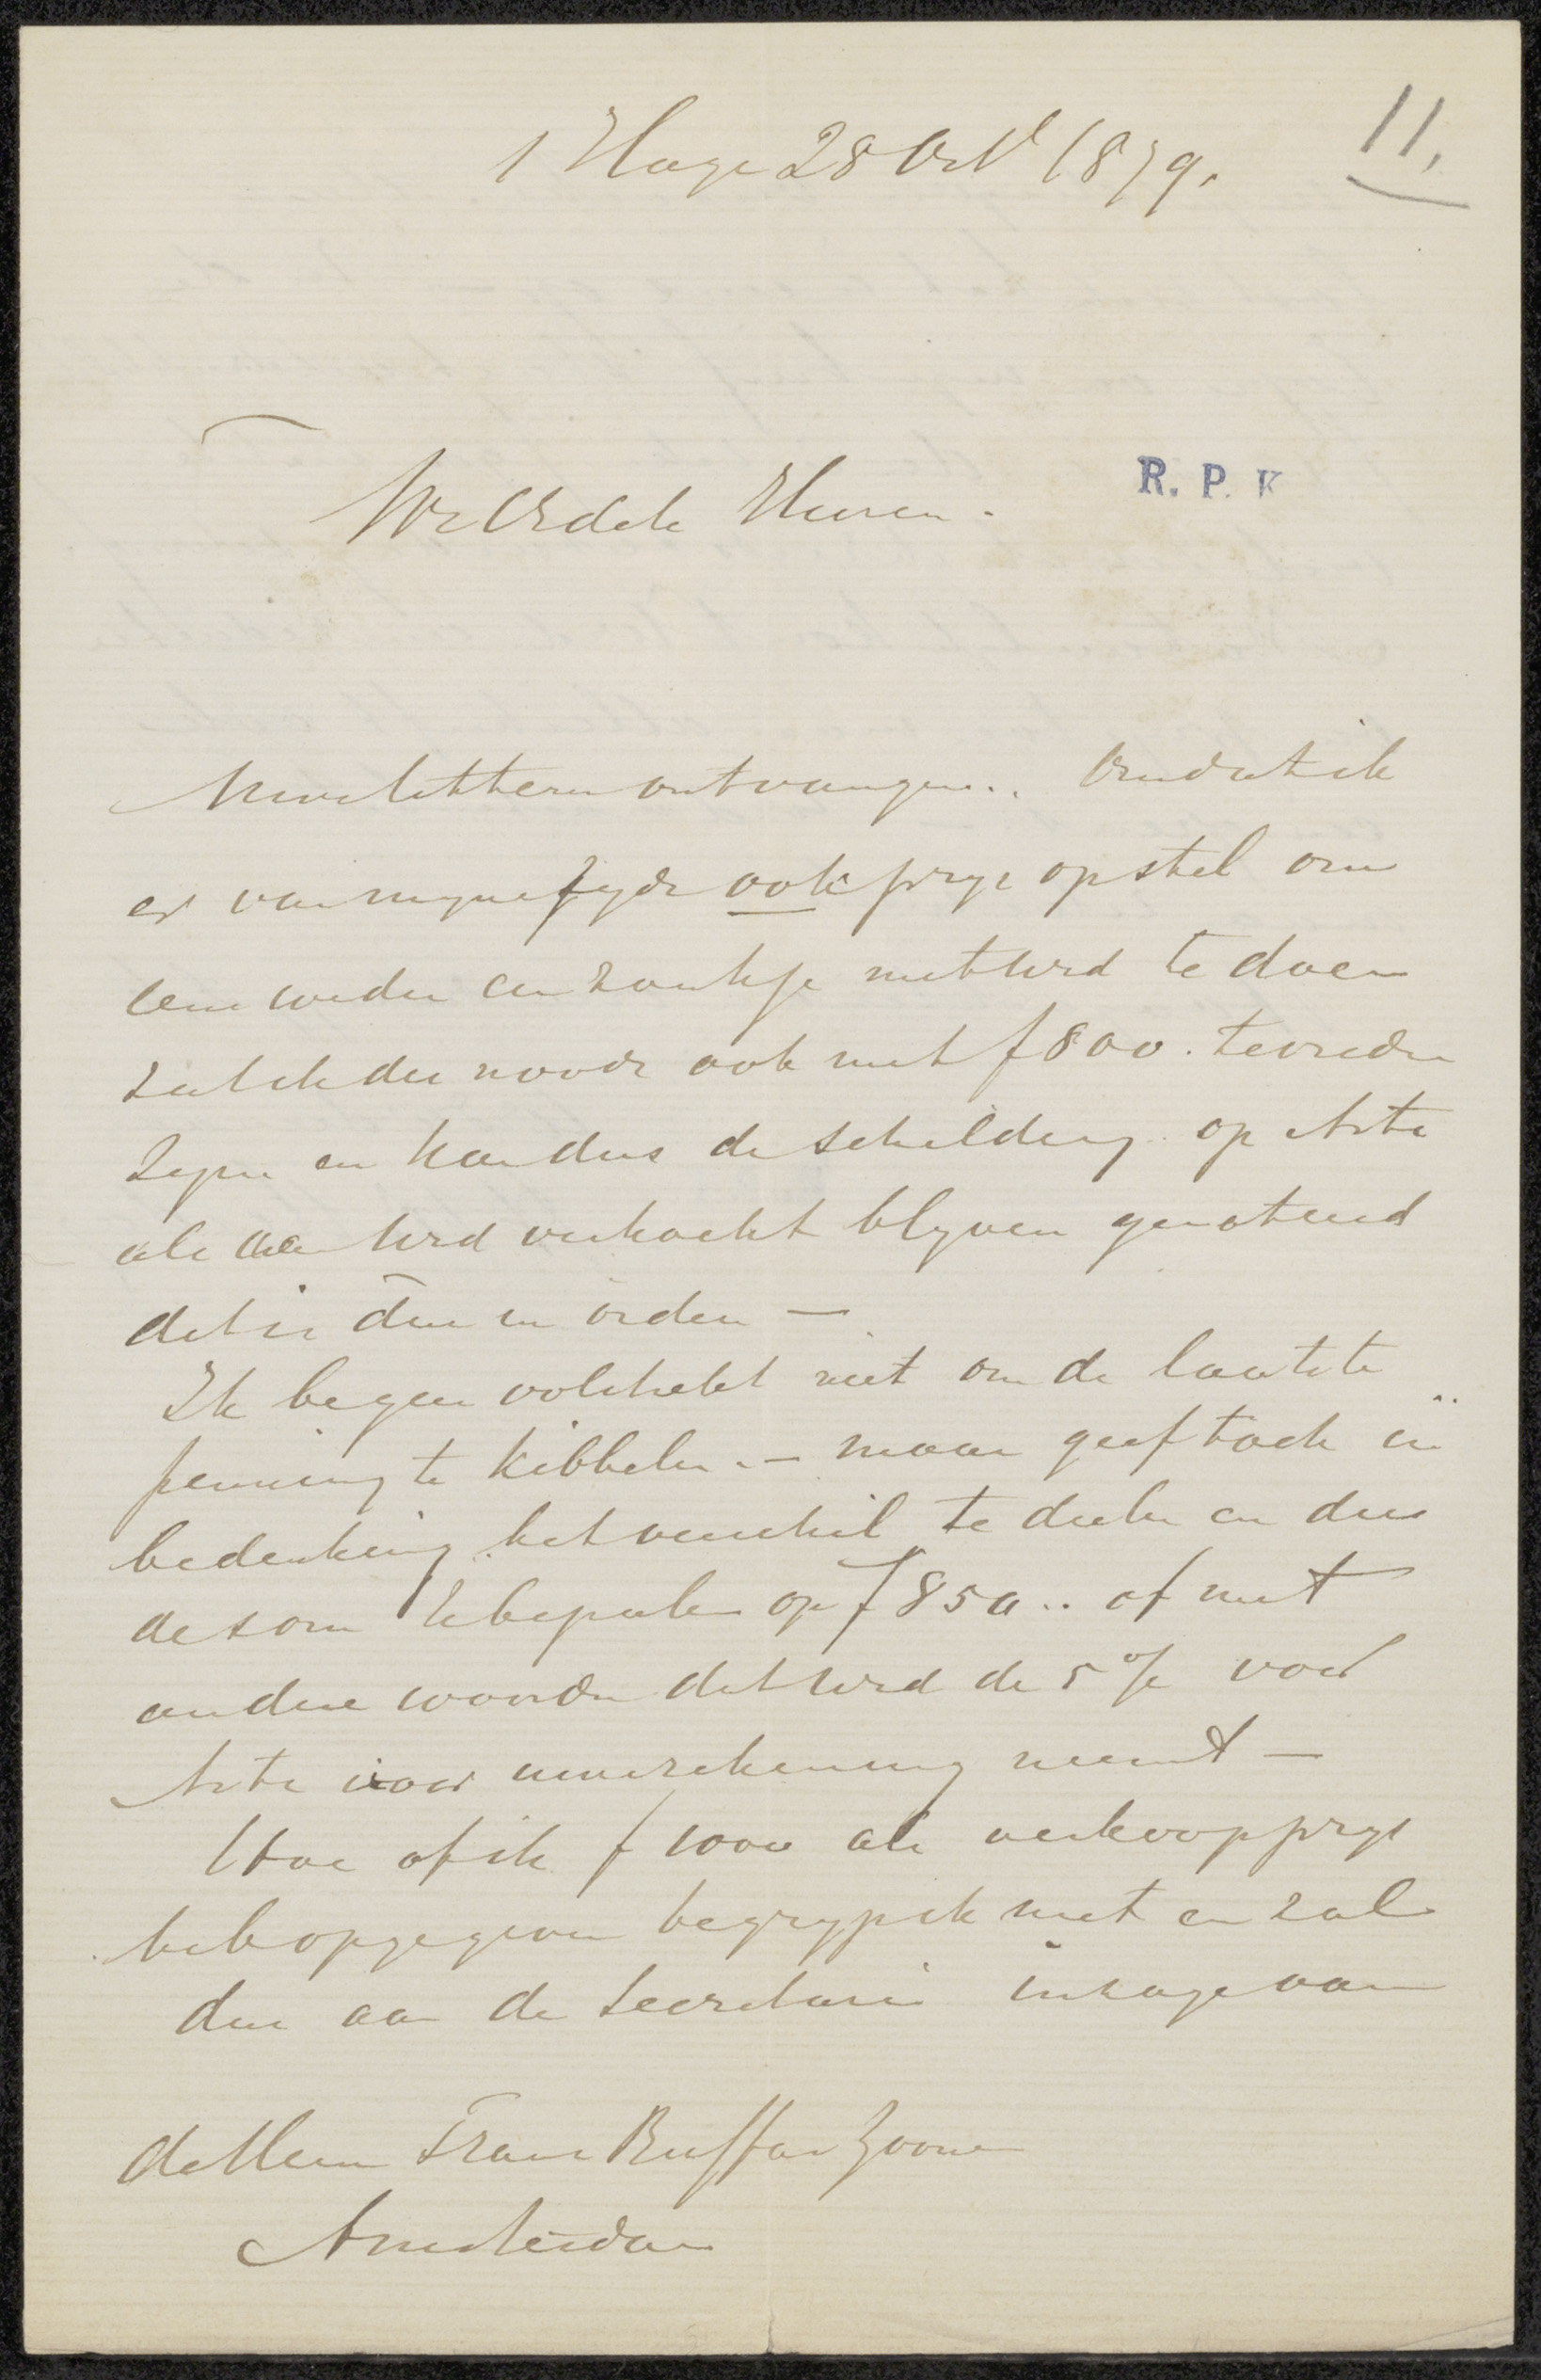 's Hage 28 Oct 1879.
11.
WelEdele Heeren.
R. P. K
Uwe letteren ontvangen.. Omdat ik
er van myne zyde ook prys op stel om
eens weder een zaakje met UEd te doen
zal ik des noods ook met f 800. tevreden
zyn en kan dus de schildery op Arti
als aan UEd verkocht blyven genoteerd
dat is dus in orden —
Ik begeer volstrekt niet om de laatste
penning te kibbelen. — maar geef toch in
bedenking het verschil te deelen en dus
de som te bepalen op f 850.. of met
andere woorden dat UEd de 5 % voor
Arti voor uwe rekening neemt —
Hoe of ik f 1000 als verkoopprys
heb opgegeven begryp ik niet en zal
dus aan de Secretarie inzage van
de Heeren Frans Buffa en Zoonen
Amsterdam